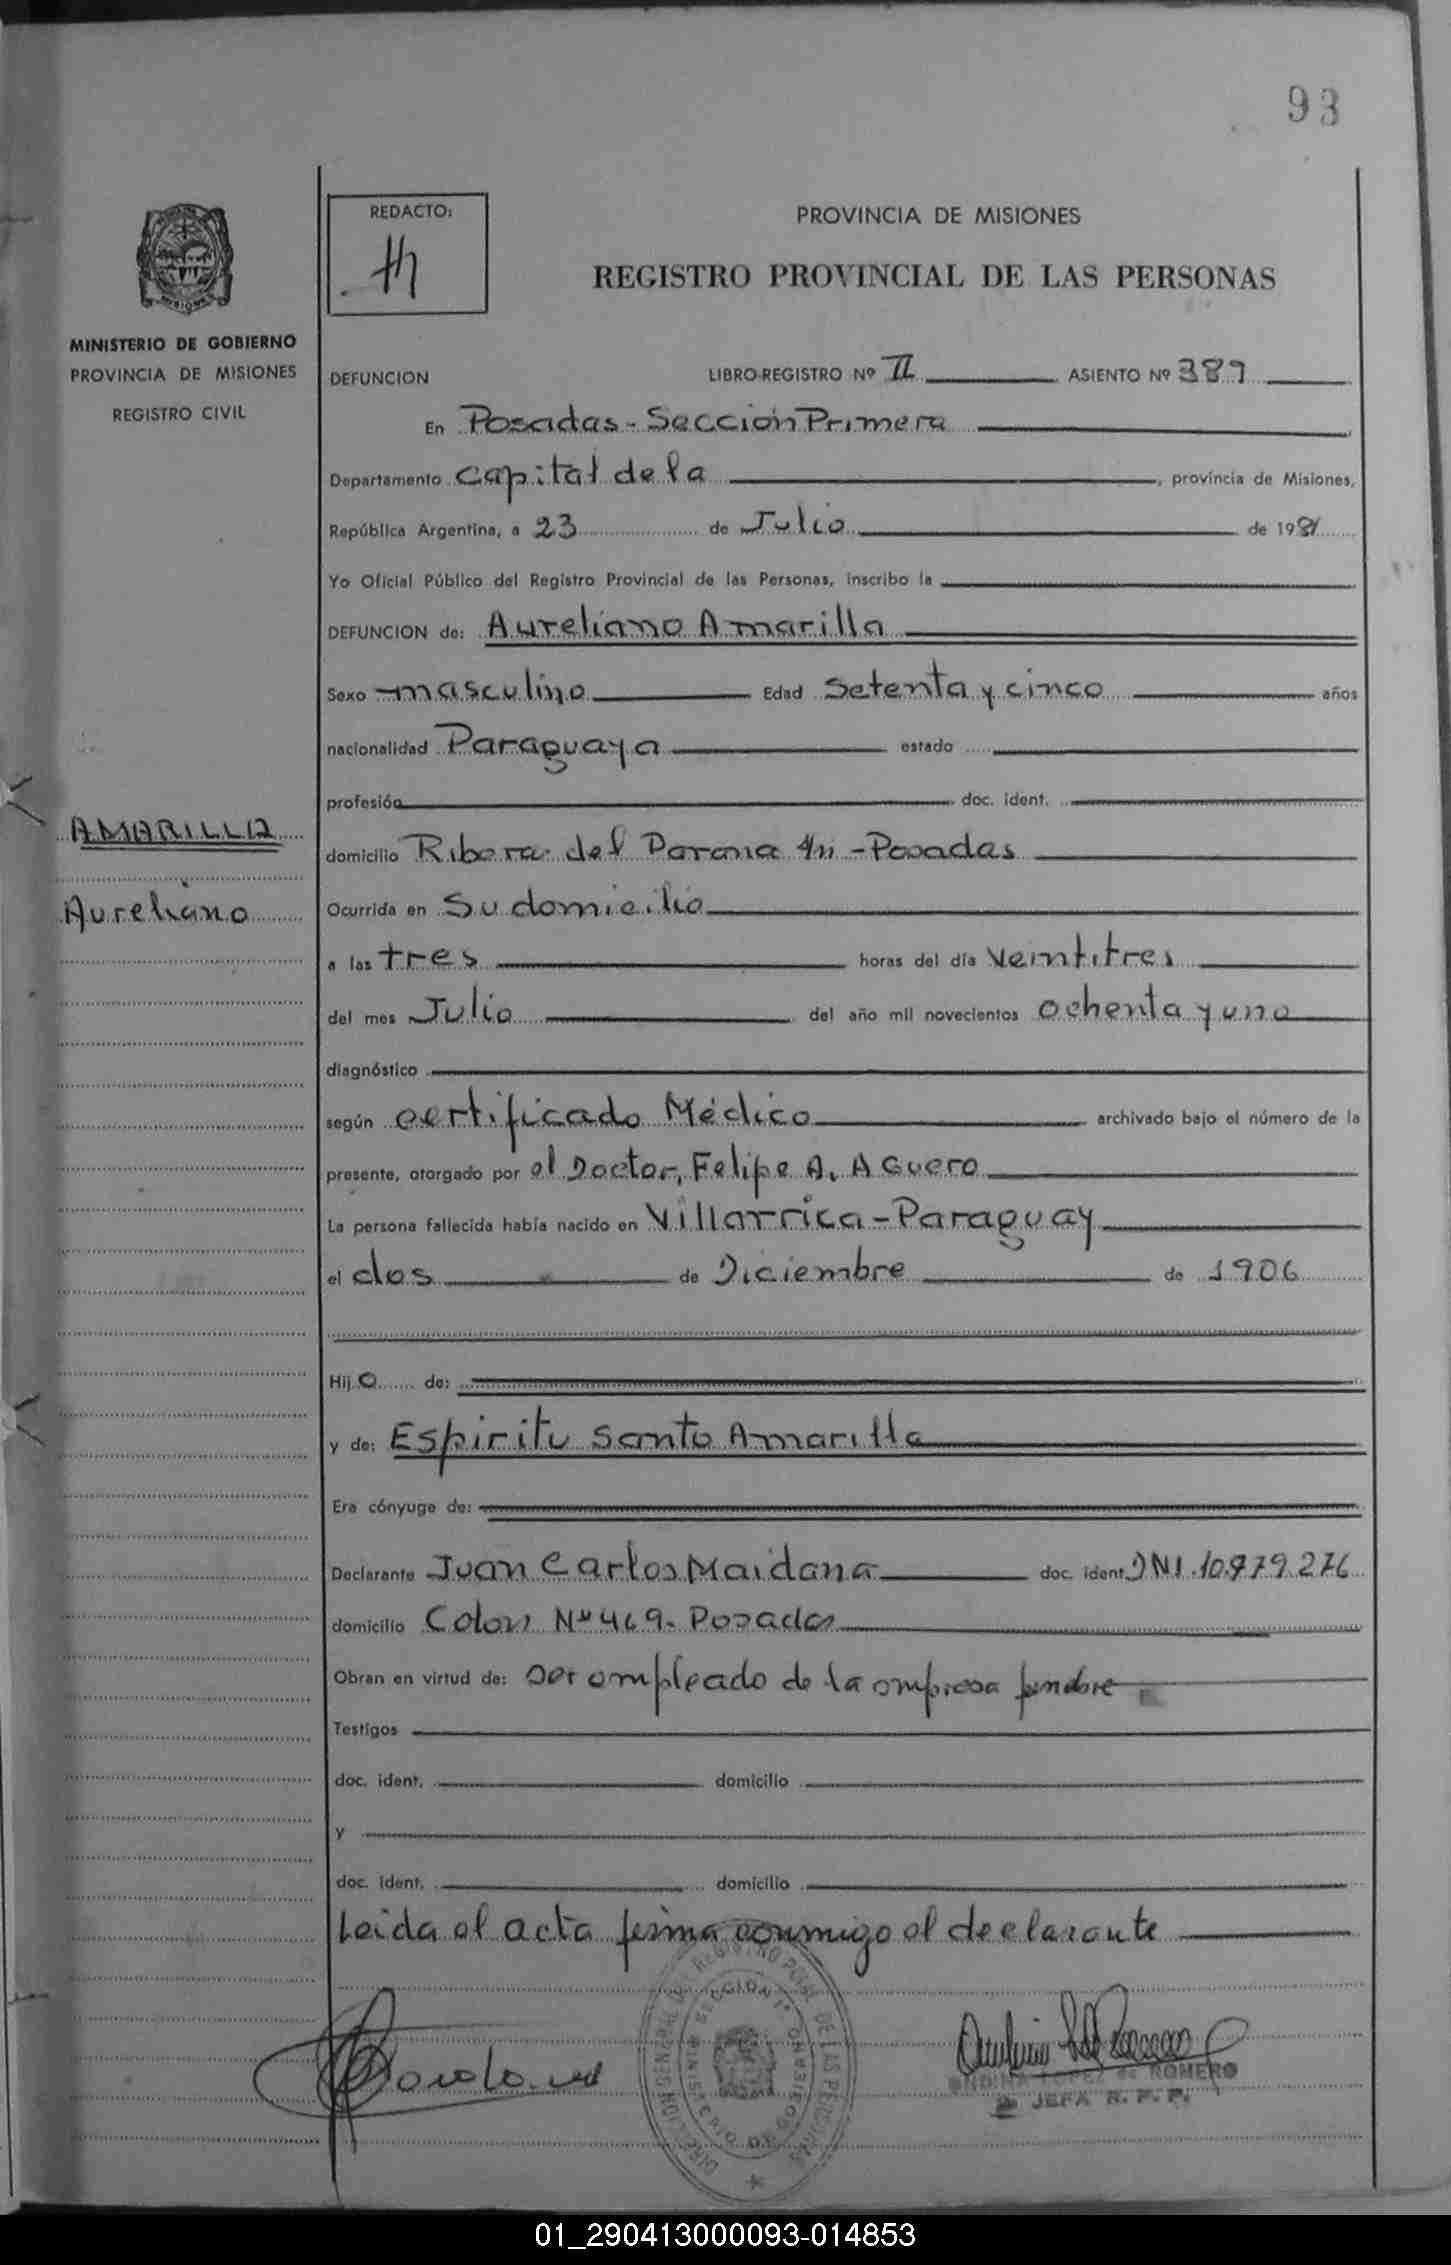 93
REDACTO:
PROVINCIA DE MISIONES
REGISTRO PROVINCIAL DE LAS PERSONAS
MINISTERIO DE GOBIERNO
PROVINCIA DE MISIONES
REGISTRO CIVIL
DEFUNCION LIBRO-REGISTRO Nº II ASIENTO Nº 389
En Posadas - Sección Primera
Departamento Capital de la , provincia de Misiones,
República Argentina, a 23 de Julio de 1981
Yo Oficial Público del Registro Provincial de las Personas, inscribo la
DEFUNCION de: Aureliano Amarilla
Sexo masculino Edad Setenta y cinco años
nacionalidad Paraguaya estado
profesión doc. ident.
AMARILLA
Aureliano
domicilio Ribera del Parana s/n - Posadas
Ocurrida en Su domicilio
a las tres horas del día Veintitres
del mes Julio del año mil novecientos ochenta y uno
diagnóstico
según certificado Médico archivado bajo el número de la
presente, otorgado por el Doctor, Felipe A. Aguero
La persona fallecida había nacido en Villarrica - Paraguay
el dos de Diciembre de 1906
Hij o de:
y de: Espiritu Santo Amarilla
Era cónyuge de:
Declarante Juan Carlos Maidana doc. ident. DNI. 10.979.276
domicilio Colon Nº 469 - Posadas
Obran en virtud de: ser empleado de la empresa funebre
Testigos
doc. ident. domicilio
y
doc. ident. domicilio
Leida el acta firma conmigo el declarante
DIRECCION GENERAL DEL REGISTRO PCIAL. DE LAS PERSONAS
SECCION 1ª
MINISTERIO DE GOBIERNO
LOPEZ de ROMERO
JEFA R. P. P.
01_290413000093-014853